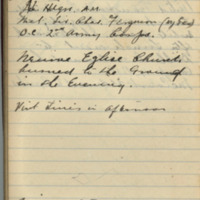 Hqrs. AM
Met. Sir Chas. Ferguson (my Gen)
O.C. 2nd Army Corps.
Neuve Eglise Church
burned to the Ground
in the Evening.
Visit Lines in afternoon